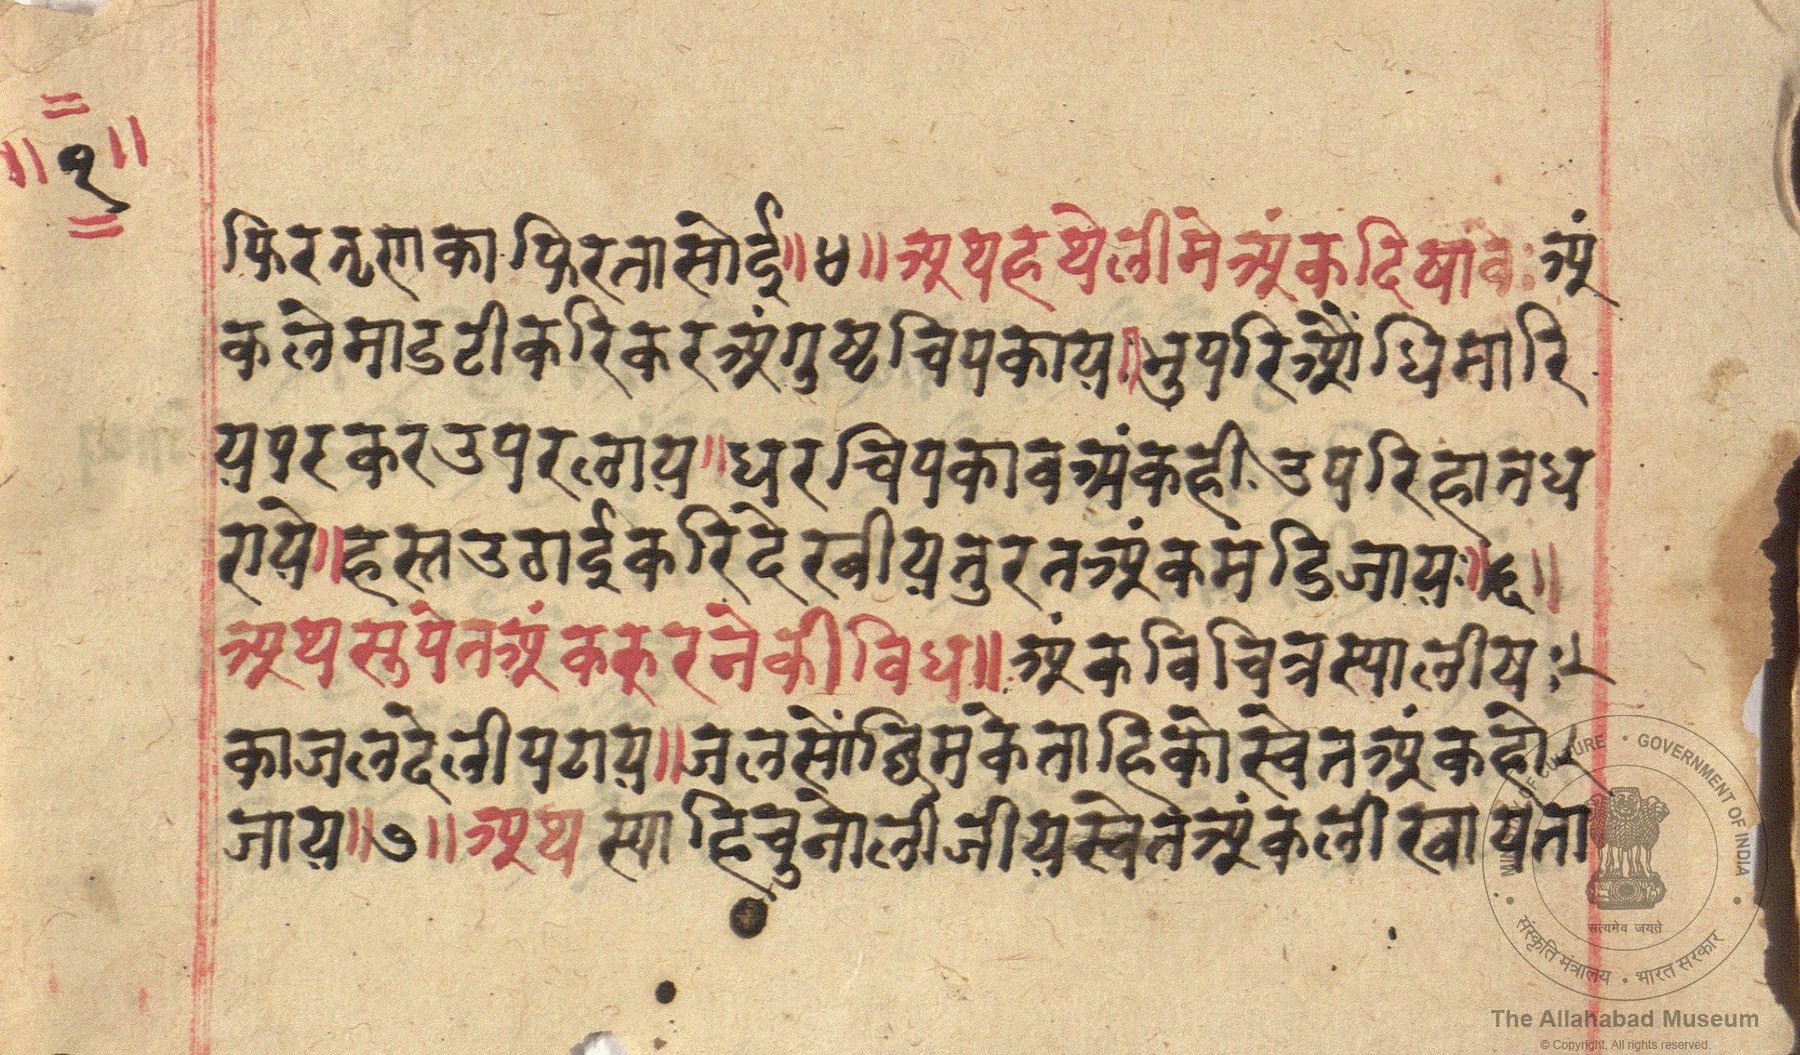 ॥१॥
फिरतृणकाफिरतासोई॥४॥अथहथेलीमेअंकदिषाव:अं
कलेमाडटीकरिकरअंगुष्ठचिपकाय॥भुपरिऔंधिमारि
य१रकरउपरलाय॥धरचिपकावअंकही.उपरिहातध
राये॥हस्तउठाईकरिदेखीयतुरतअंकमंडिजाय:॥६॥
अथस्तुपेतअंककरनेकीविध॥अंकविचित्रस्यालीष:
काजलदेलीपटाय॥जलसोंछिमकेताहिकोस्वेतअंकहो
जाय॥७॥अथस्याहिचुनोलीजीयस्वेतअंकलीखायता
MINISTRY OF CULTURE • GOVERNMENT OF INDIA
सत्यमेव जयते
संस्कृति मंत्रालय • भारत सरकार
The Allahabad Museum
© Copyright, All rights reserved.